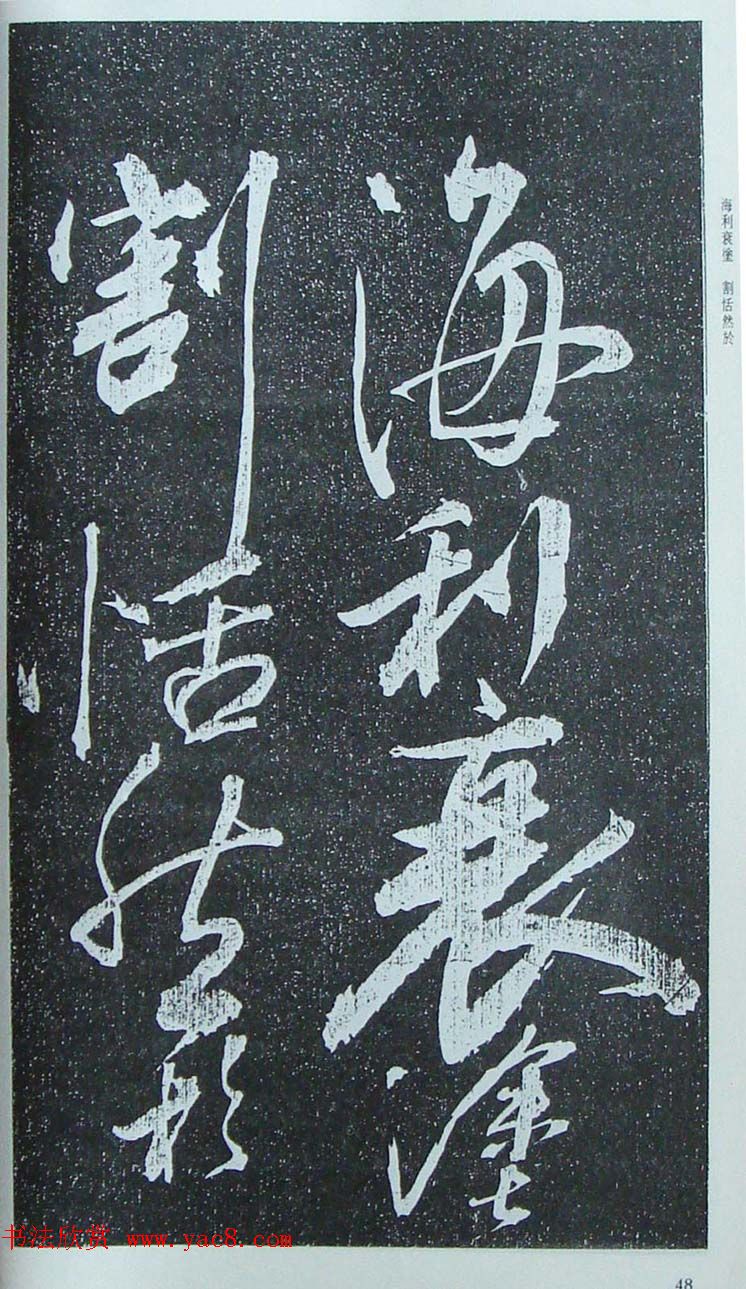 海利衰塗
割恬然於
海利衰塗 割恬然於
48
书法欣赏 www.yac8.com